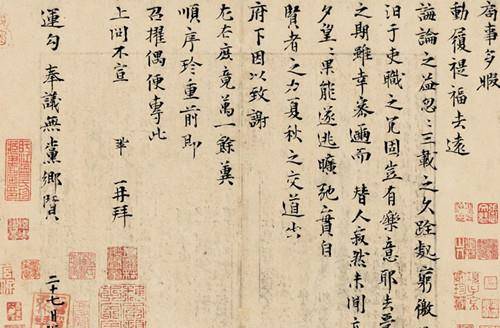 局事多暇
動履禔福去遠
誨論之益忽忽三載之久跧處窮徼
汩于吏職之冗固豈有樂意耶去受
之期雖幸密邇而替人寂然未聞亦
夕望望果能遂逃曠弛實自
賢者之力夏秋之交道出
府下因以致謝
左右庶竟萬一餘冀
順序珍重前即
召擢偶便專此
上問不宣 鞏 再拜
運勾奉議無黨鄉賢 二十七日